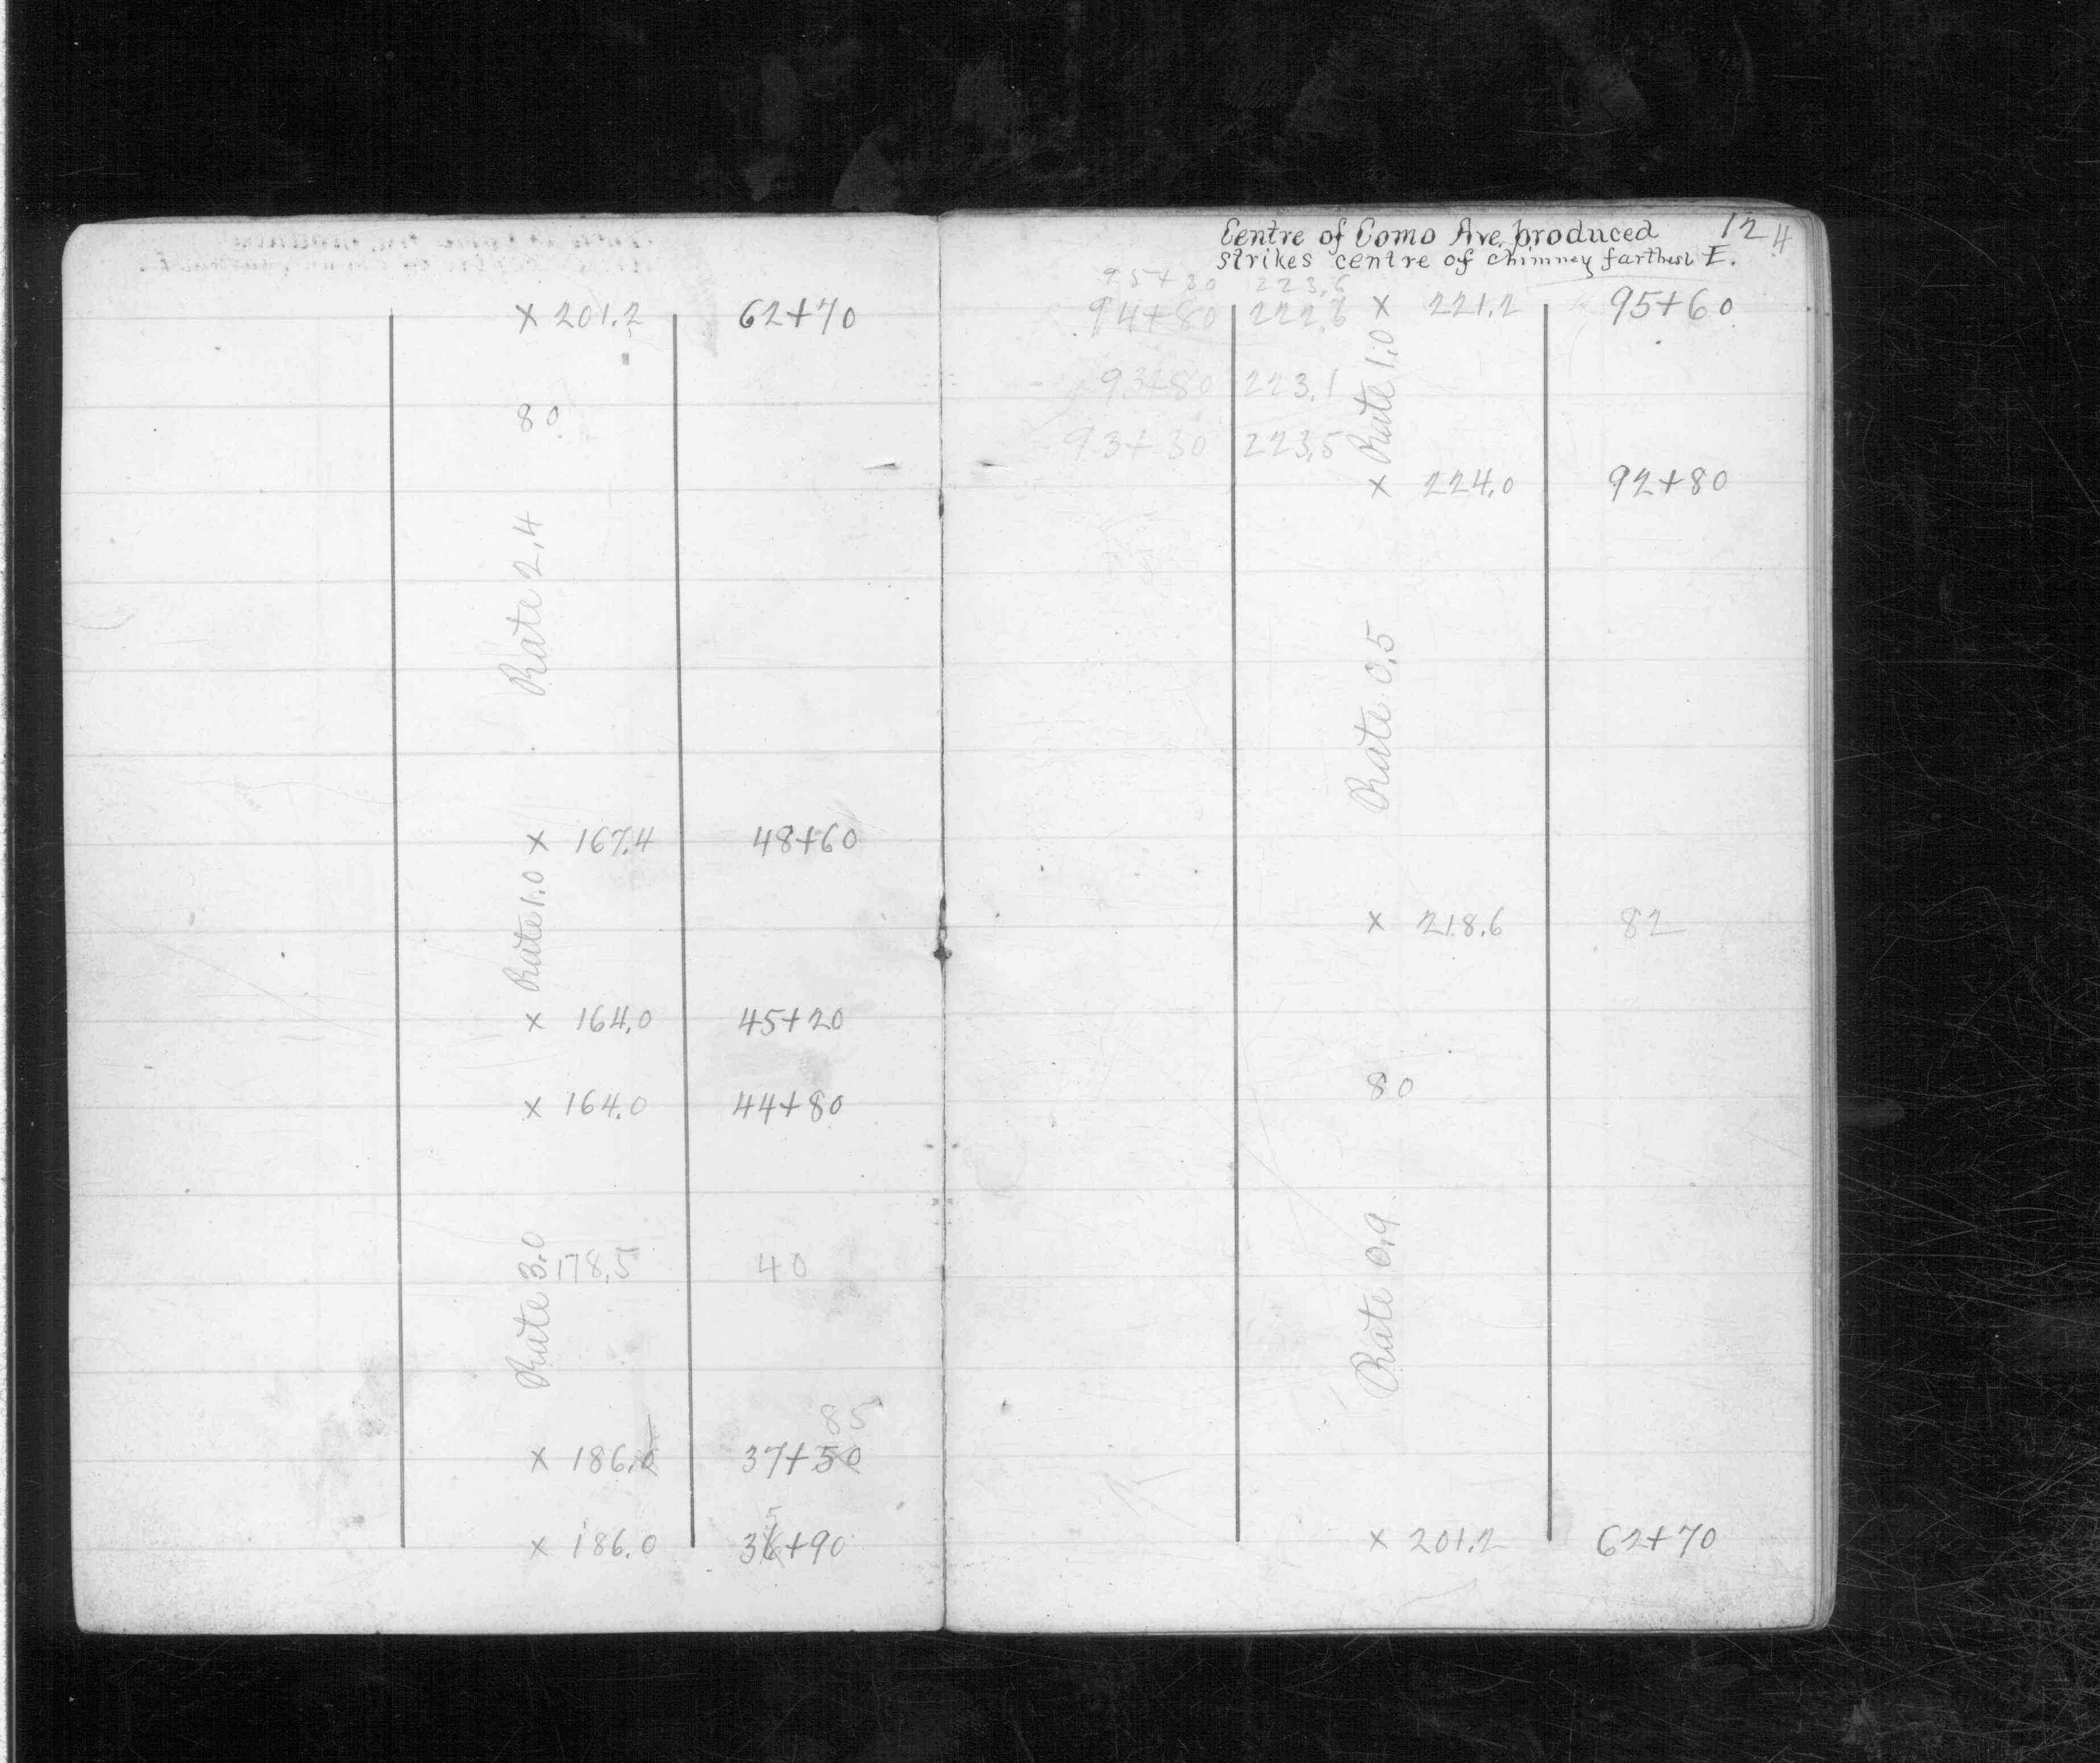 × 201.2 62+70
80
Rate 2.4
× 167.4 48+60
Rate 1.0
× 164.0 45+20
× 164.0 44+80
Rate 3.0
178.5 40
85
× 186.0 37+50
5
× 186.0 36+90
12 4
Centre of Como Ave. produced
strikes centre of chimney farthest E.
95+30 223.6
94+80 222.6 × 221.2 95+60
Rate 1.0
93+80 223.1
93+30 223.5
× 224.0 92+80
Rate 0.5
× 218.6 82
80
Rate 0.9
× 201.2 62+70